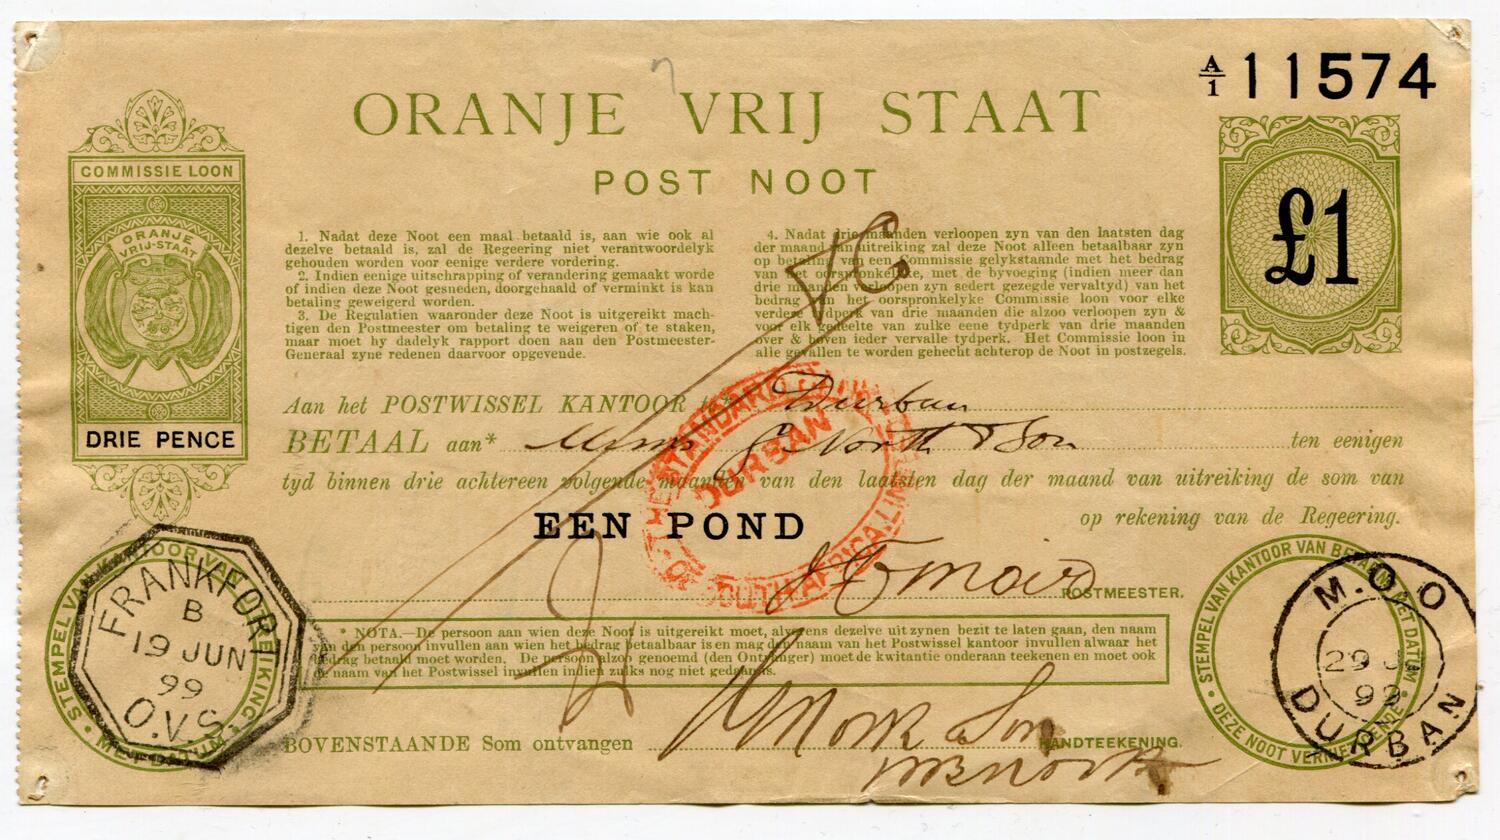 A/1 11574
ORANJE VRIJ STAAT
POST NOOT
COMMISSIE LOON
ORANJE
VRIJ-STAAT
DRIE PENCE
£1
1. Nadat deze Noot een maal betaald is, aan wie ook al
dezelve betaald is, zal de Regeering niet verantwoordelyk
gehouden worden voor eenige verdere vordering.
2. Indien eenige uitschrapping of verandering gemaakt worde
of indien deze Noot gesneden, doorgehaald of verminkt is kan
betaling geweigerd worden.
3. De Regulatien waaronder deze Noot is uitgereikt mach-
tigen den Postmeester om betaling te weigeren of te staken,
maar moet hy dadelyk rapport doen aan den Postmeester-
Generaal zyne redenen daarvoor opgevende.
4. Nadat drie maanden verloopen zyn van den laatsten dag
der maand van uitreiking zal deze Noot alleen betaalbaar zyn
op betaling van een Commissie gelykstaande met het bedrag
van het oorspronkelyke, met de byvoeging (indien meer dan
drie maanden verloopen zyn sedert gezegde vervaltyd) van het
bedrag van het oorspronkelyke Commissie loon voor elke
verdere tydperk van drie maanden die alzoo verloopen zyn &
voor elk gedeelte van zulke eene tydperk van drie maanden
over & boven ieder vervalle tydperk. Het Commissie loon in
alle gevallen te worden gehecht achterop de Noot in postzegels.
Aan het POSTWISSEL KANTOOR te* Durban
BETAAL aan* Messrs G. North & Son ten eenigen
tyd binnen drie achtereen volgende maanden van den laatsten dag der maand van uitreiking de som van
EEN POND op rekening van de Regeering.
POSTMEESTER.
* NOTA.—De persoon aan wien deze Noot is uitgereikt moet, alvorens dezelve uit zynen bezit te laten gaan, den naam
van den persoon invullen aan wien het bedrag betaalbaar is en mag den naam van het Postwissel kantoor invullen alwaar het
bedrag betaald moet worden. De persoon alzoo genoemd (den Ontvanger) moet de kwitantie onderaan teekenen en moet ook
de naam van het Postwissel invullen indien zulks nog niet gedaan is.
BOVENSTAANDE Som ontvangen HANDTEEKENING.
THE STANDARD BANK OF SOUTH AFRICA, LIMITED
DURBAN
STEMPEL VAN KANTOOR VAN UITREIKING
MET DATUM
FRANKFORT
B
19 JUN
99
O.V.S.
STEMPEL VAN KANTOOR VAN BETALING MET DATUM
DEZE NOOT VERNIETIGENDE
M.O.O
29 JU
99
DURBAN